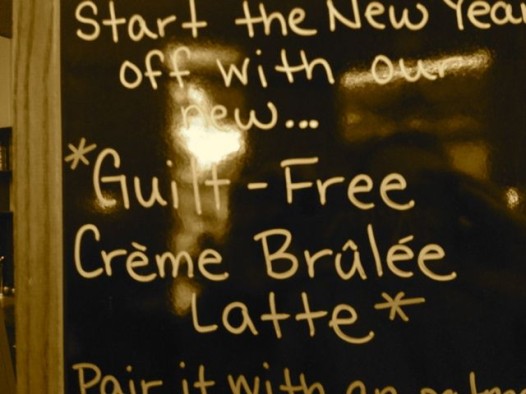 Start the New Year
off with our
new...
*Guilt-Free
Crème Brûlée
Latte*
Pair it with an